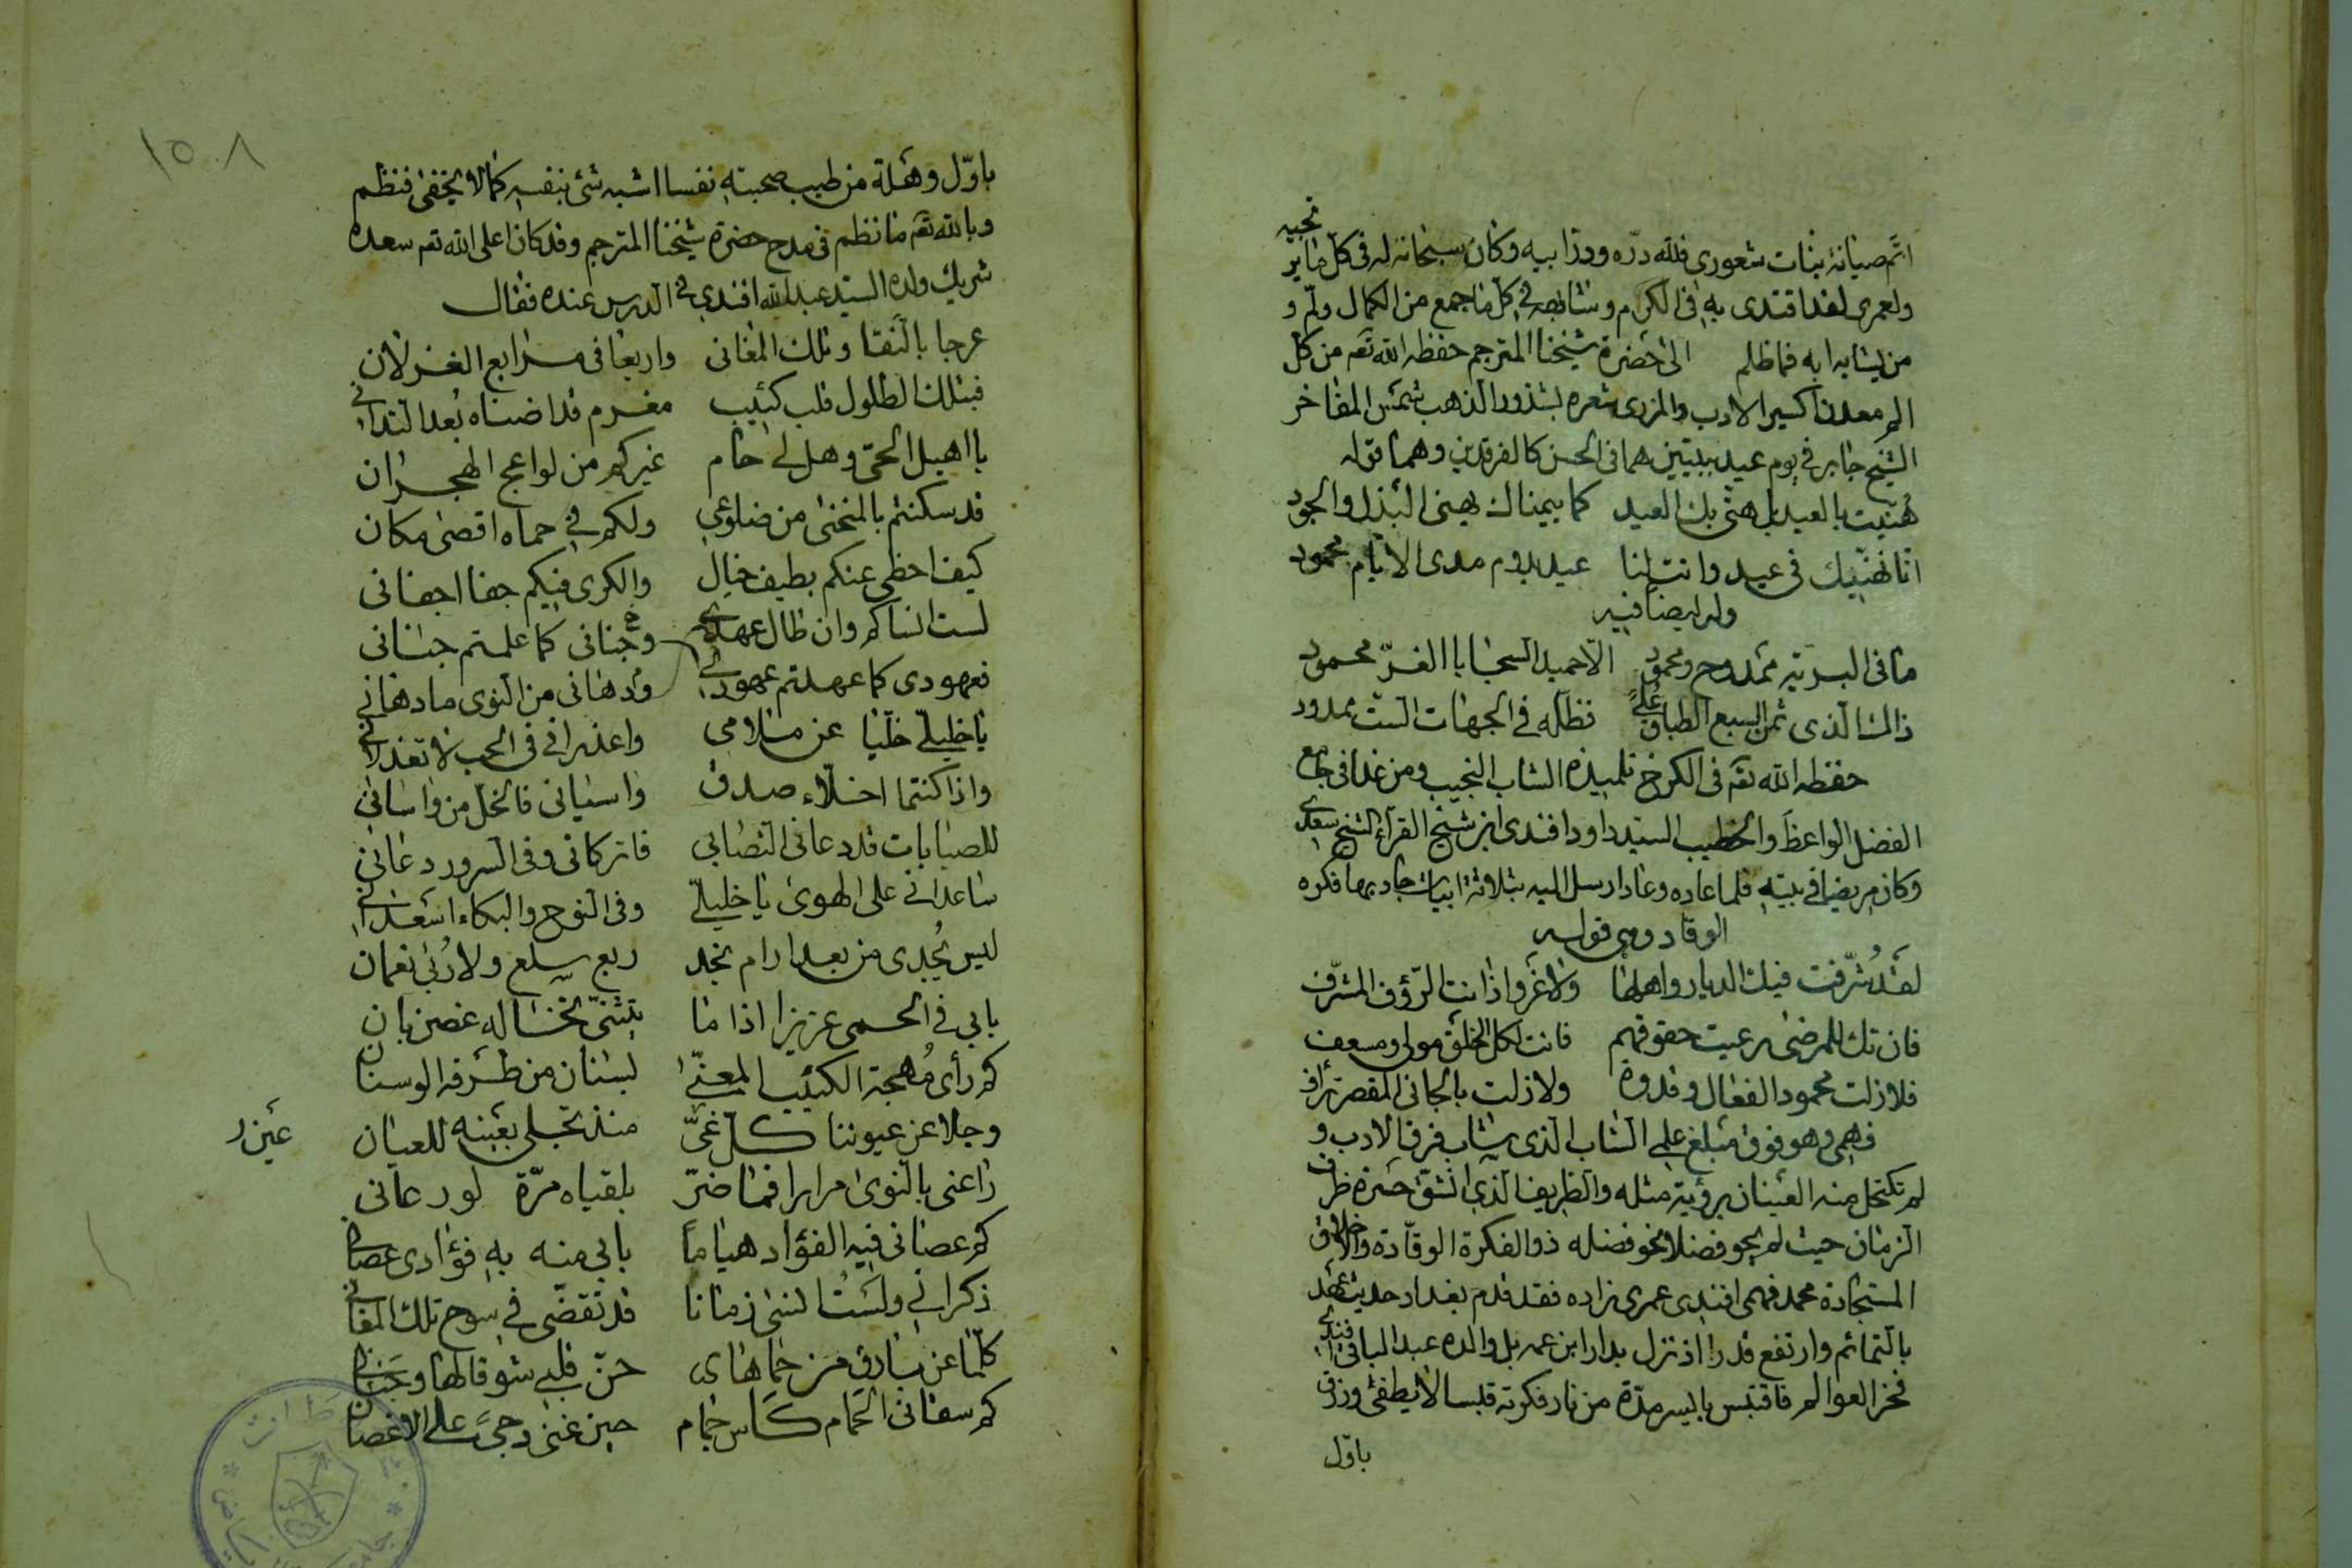 اتم صيانة بنات شعوري فلله دره ووزا بيه وكان سبحانه له في كل ما ير تجيه
ولعمري لقد اقتدى به في الكرم وشابهه في كل ما جمع من الكمال ولم و
من يشابه ابه فما ظلم الى حضرة شيخنا المترجم حفظه الله تعه من كل
الم معدن اكسير الادب والمزري شعره بشذور الذهب شمس المفاخر
الشيخ جابر في يوم عيد ببيتين هما في الحسن كالفرقدين وهما قوله
هنيت بالعيد بل هنى بك العيد كما بيمناك يهنى البذل والجود
انا نهنيك في عيد وانت لنا عيد يدوم مدى الايام محمود
وله ايضا فيه
ما في البرية ممدوح ومحمود الا حميد السجايا الغر محمود
ذاك الذي ثمن السبع الطباق علىً فظله في الجهات الست ممدود
حفظه الله تعه في الكرخ تلميذه الشاب النجيب ومن غدا في جامع
الفضل الواعظ والخطيب السيد داود افندي ابن شيخ القراء الشيخ سعدي
وكان مريضا في بيته فلما عاده وعاد ارسل اليه بثلاثة ابيات جاد بها فكره
الوقاد وهي قوله
لقد شُرّفت فيك الديار واهلها ولا غرو اذ انت الرؤف المشرّف
فان تك للمرضى رعيت حقوقهم فانت لكل الخلق مولى ومسعف
فلا زلت محمود الفعال وقدوة ولا زلت بالجاني المقصر ترأف
فهمي وهو فوق مبلغ علمي الشاب الذي شاب فرق الادب و
لم تكتحل منه العينان برؤية مثله والظريف الذي انشق حسرة ظرف
الزمان حيث لم يحو فضلا نحو فضله ذو الفكرة الوقادة والاخلاق
المستجادة محمد فهمي افندي عمري زاده فقد قدم بغداد حديث عهد
بالتمائم وارتفع قدرا اذ نزل بدار ابن عمه بل والده عبد الباقي افندي
فخر العوالم فاقتبس بايسر مدة من نار فكرته قبسا لا يطفئ ورزق
باول
١٥٨
باوّل وهلة من طيب صحبته نفسا اشبه شئ بنفسه كما لا يخفى فنظم
وبالله تعه ما نظم في مدح حضرة شيخنا المترجم وقد كان اعلى الله تعه سعده
شريك ولده السيد عبد الله افندي في الدرس عنده فقال
عرجا بالنقا وتلك المغاني واربعا في مرابع الغزلان
فبتلك الطلول قلب كئيب مغرم قد اضناه بُعد التداني
يا اهيل الحمى وهل لي حام غيركم من لواعج الهجران
قد سكنتم بالمنحنى من ضلوعي ولكم في حماه اقصى مكان
كيف احظى عنكم بطيف خيال والكرى فيكم جفا اجفاني
لست انساكم وان طال عهدي وجناني كما علمتم جناني
فعهودي كما عهدتم عهودي ودهاني من النوى ما دهاني
يا خليليّ خليا عن ملامي واعذراني في الحب لا تعذلاني
واذا كنتما اخلاء صدق واسياني فالخل من واساني
للصبابات قد دعاني التصابي فاتركاني وفي السرور دعاني
ساعداني على الهوى يا خليليّ وفي النوح والبكاء اسعداني
ليس يُجدي من بعد ارام نجد ربع سلع ولا رُبى نعمان
بابي في الحمى عزيزا اذا ما يتثنى نخاله غصن بان
كم رأى مُهجة الكئيب المعنّى بسنان من طرفه الوسنان
وجلا عن عيوننا كل غيّ منذ تجلى بعينه للعيان
عين ر
راعني بالنوى مرارا فما ضرّ بلقياه مرّة لو رعاني
كم عصاني فيه الفؤاد هياماً بابي منه به فؤادي عصاني
ذكراني ولستُ انسى زمانا قد تقضّى في سوح تلك المغاني
كلما عن بارق من حماها حنّ قلبي شوقا لها وجناني
كم سقاني الحمام كاس حمام حين غنى وجىً على الاغصان